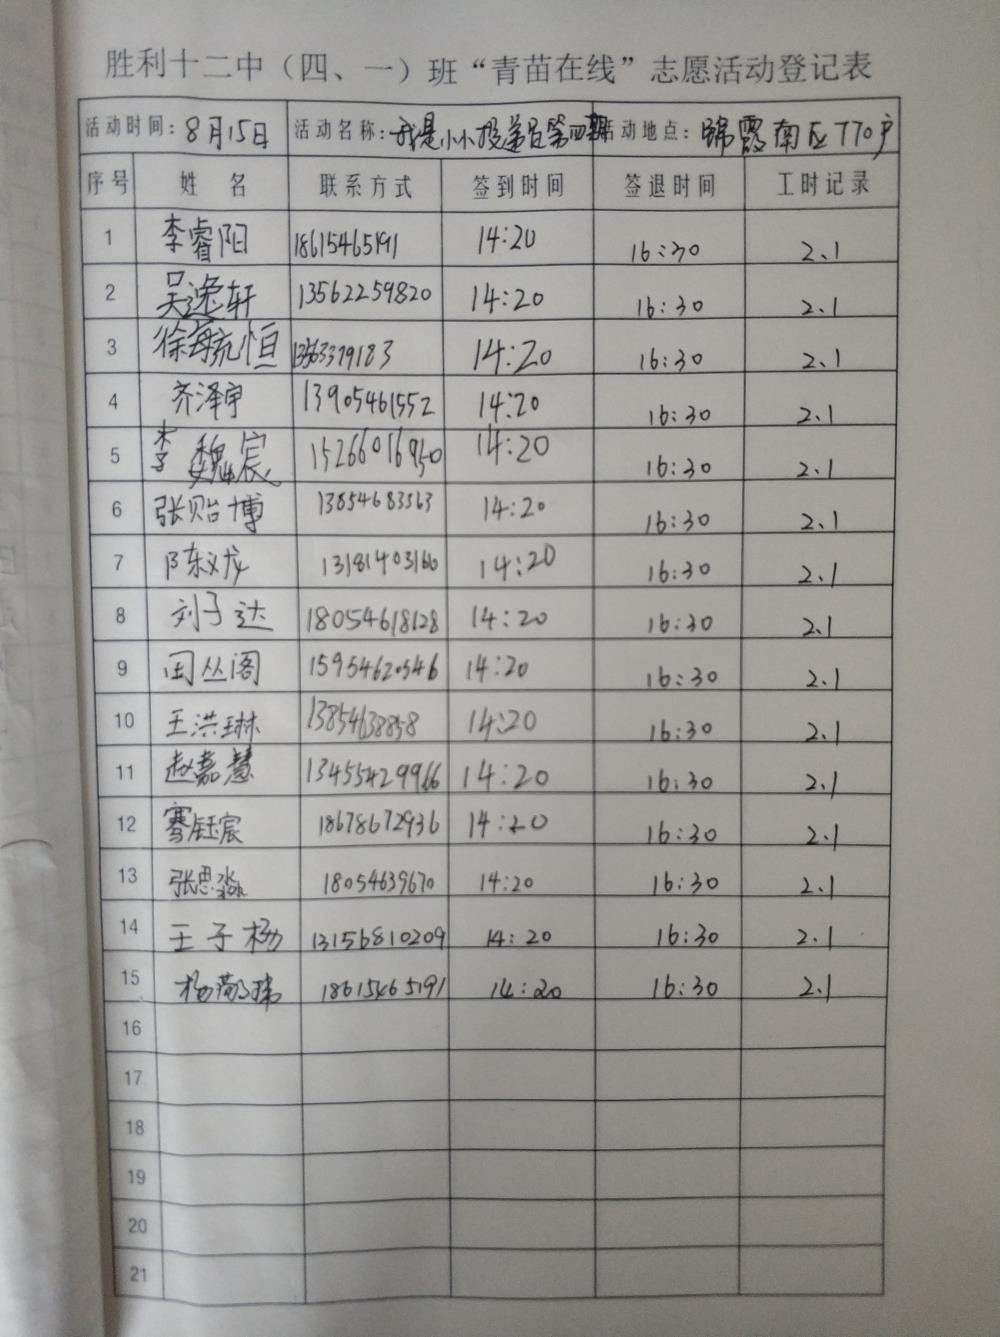 胜利十二中（四、一）班“青苗在线”志愿活动登记表
活动时间：8月15日 活动名称：我是小小投递员第四期 活动地点：锦霞南区770户
序号 姓 名 联系方式 签到时间 签退时间 工时记录
1 李睿阳 18615465191 14:20 16:30 2.1
2 吴逸轩 13562259820 14:20 16:30 2.1
3 徐毓恒 14:20 16:30 2.1
4 齐泽宇 13905461552 14:20 16:30 2.1
5 李魏宸 15266016950 14:20 16:30 2.1
6 张贻博 13854683563 14:20 16:30 2.1
7 陈义龙 13181403160 14:20 16:30 2.1
8 刘子达 18054618128 14:20 16:30 2.1
9 田丛阁 15954620546 14:20 16:30 2.1
10 王洪琳 13854638858 14:20 16:30 2.1
11 赵嘉慧 13455429966 14:20 16:30 2.1
12 骞钰宸 18678672936 14:20 16:30 2.1
13 张思淼 18054639670 14:20 16:30 2.1
14 王子杨 13156810209 14:20 16:30 2.1
15 杨 18615465191 14:20 16:30 2.1
16
17
18
19
20
21